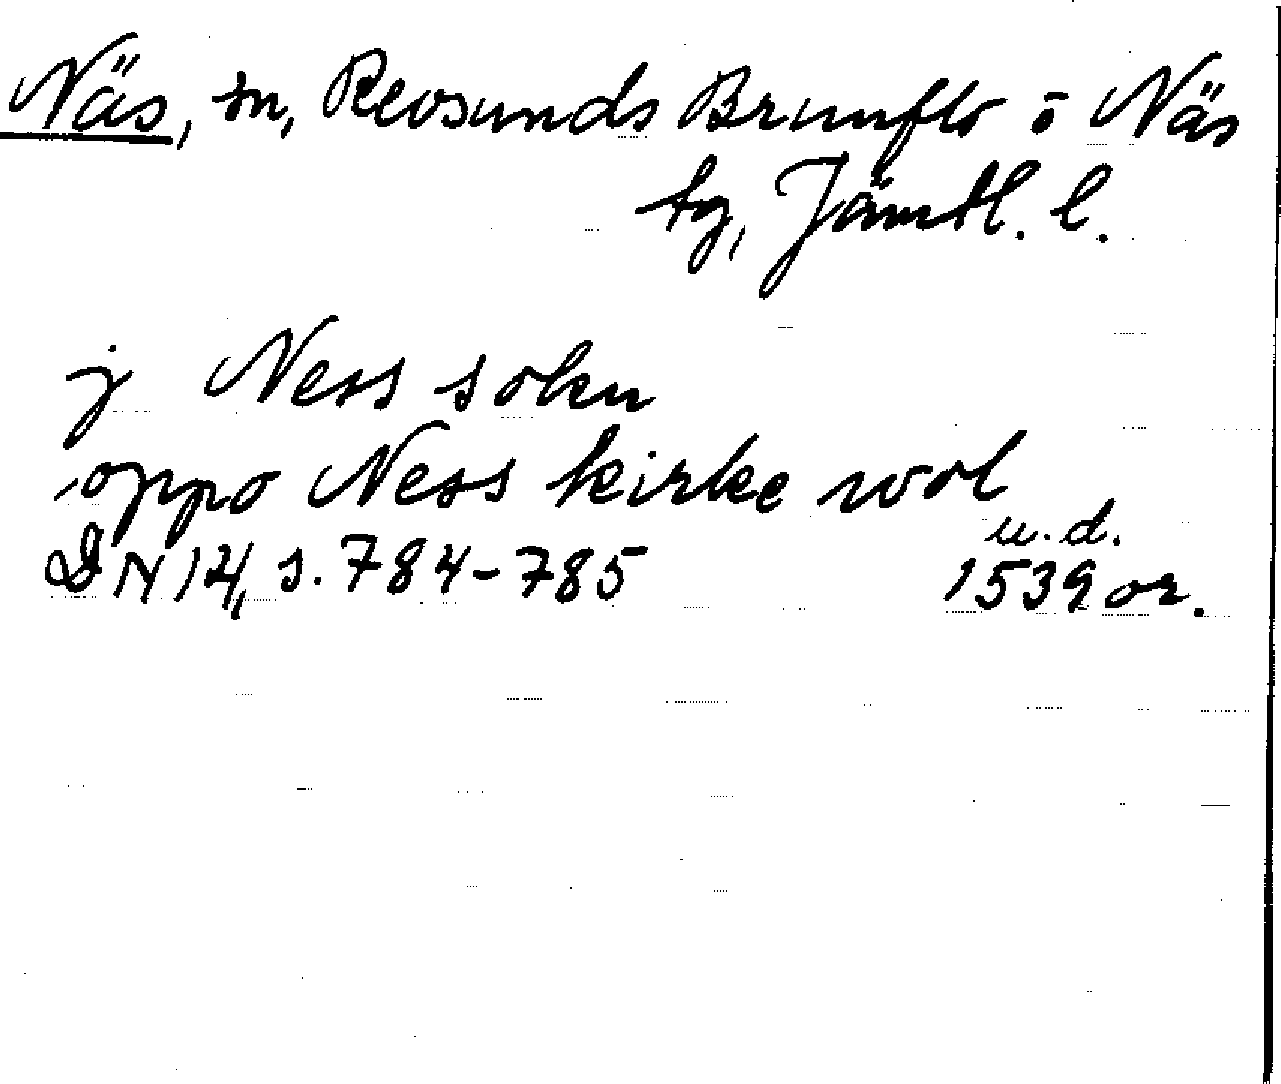 Näs, sn, Revsunds Brunflo o Näs
tg, Jämtl. l.
j Ness sokn
oppo Ness kirke wol
u.d.
DN 14, s. 784-785 1539 or.